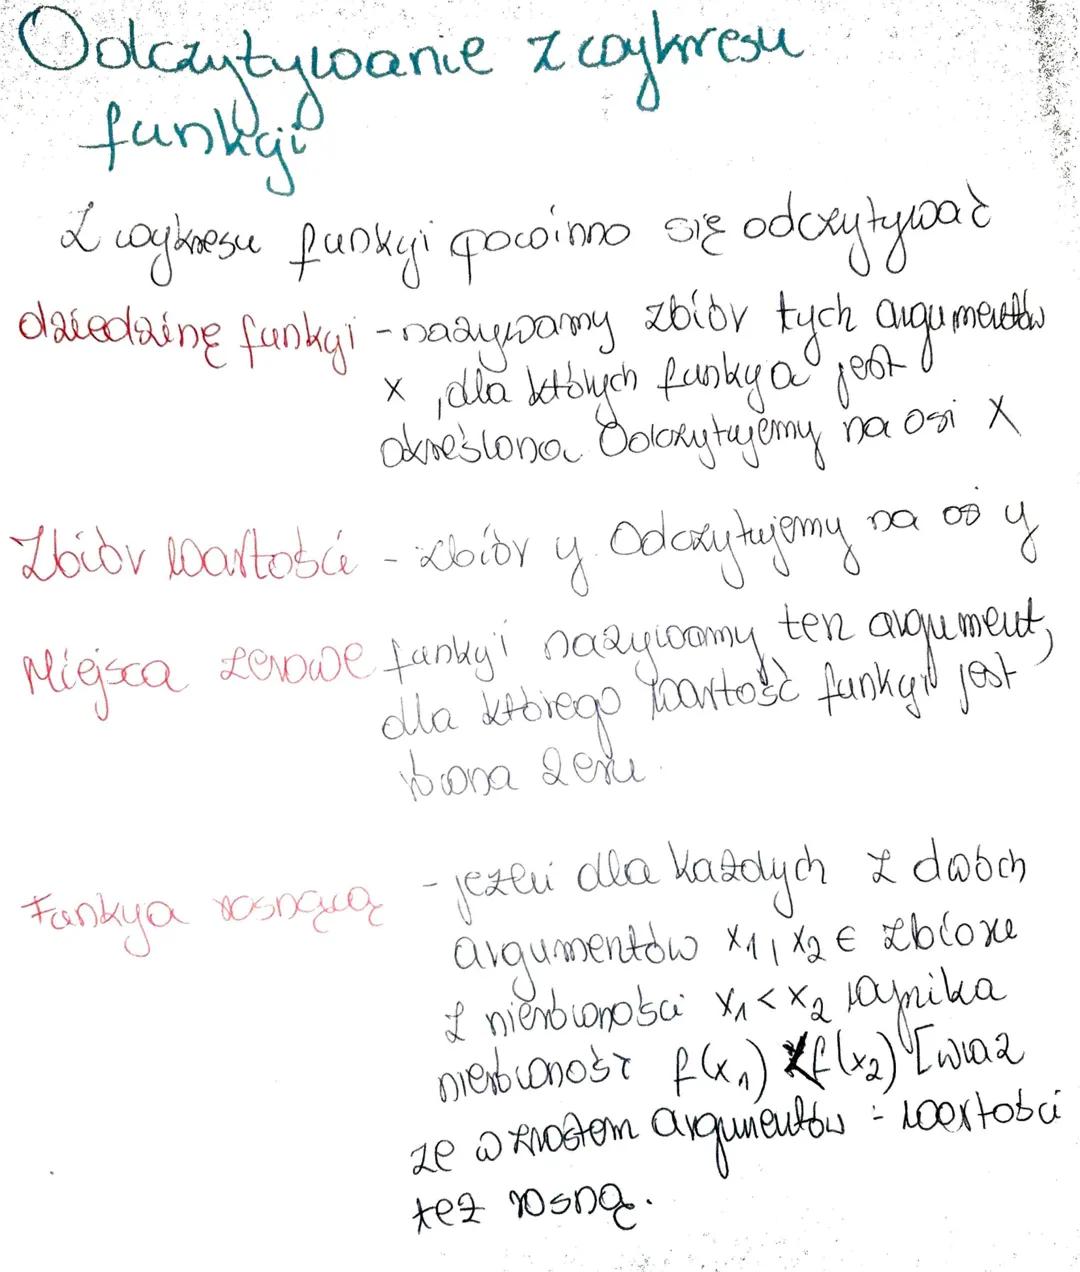 Odczytywanie z wykresu
funkcji
Z wykresu funkcji powinno się odczytywać
dziedzinę funkcji - nazywamy zbiór tych argumentów
x, dla których funkcja jest
określona. Odczytujemy na osi X
Zbiór wartości - zbiór y. Odczytujemy na oś y
Miejsca zerowe funkcji nazywamy ten argument,
dla którego wartość funkcji jest
równa zeru.
Funkcja rosnąca - jeżeli dla każdych z dwóch
argumentów x₁, x₂ ∈ zbioru
z nierówności x₁ < x₂ wynika
nierówność f(x₁) < f(x₂) [wraz
ze wzrostem argumentów - wartości
też rosną.